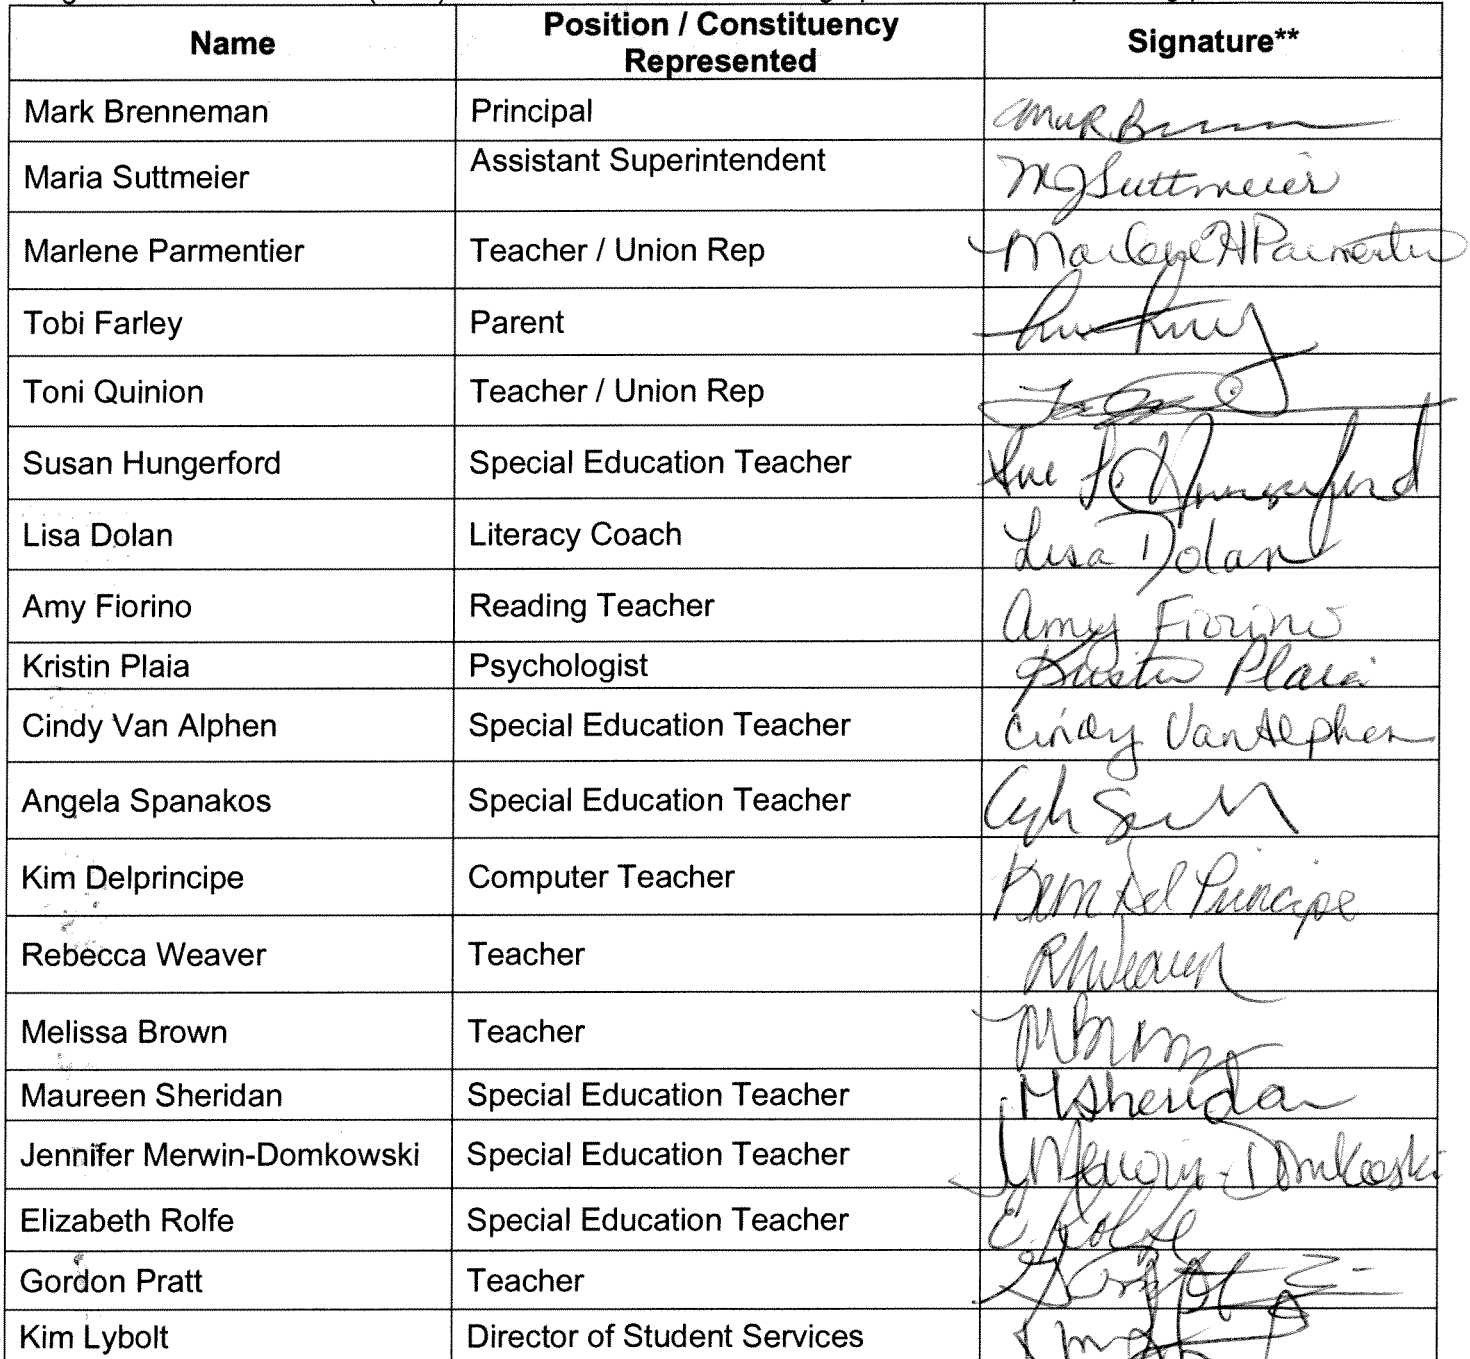 Name Position / Constituency Signature**
Represented
Mark Brenneman Principal
Maria Suttmeier Assistant Superintendent MJSuttmeier
Marlene Parmentier Teacher / Union Rep Marlene H Parmentier
Tobi Farley Parent
Toni Quinion Teacher / Union Rep
Susan Hungerford Special Education Teacher Sue Hungerford
Lisa Dolan Literacy Coach Lisa Dolan
Amy Fiorino Reading Teacher Amy Fiorino
Kristin Plaia Psychologist Kristin Plaia
Cindy Van Alphen Special Education Teacher Cindy VanAlphen
Angela Spanakos Special Education Teacher
Kim Delprincipe Computer Teacher Kim Del Principe
Rebecca Weaver Teacher RWeaver
Melissa Brown Teacher MBrown
Maureen Sheridan Special Education Teacher MSheridan
Jennifer Merwin-Domkowski Special Education Teacher J Merwin-Domkowski
Elizabeth Rolfe Special Education Teacher E. Rolfe
Gordon Pratt Teacher
Kim Lybolt Director of Student Services